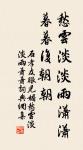 愁雲淡淡雨瀟瀟
暮暮復朝朝
石孝友眼兒媚愁雲淡
淡雨瀟瀟詞典網集